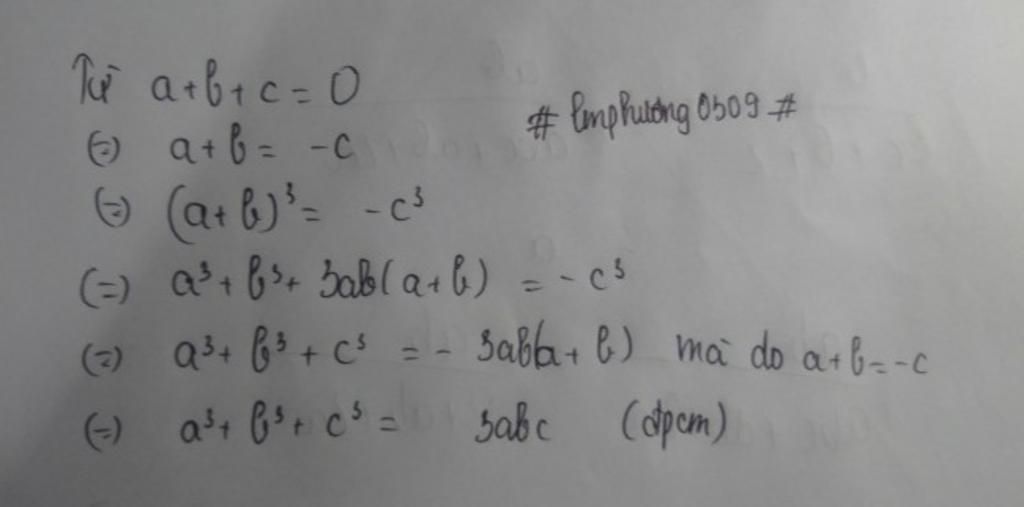 Từ a+b+c=0
# lmphương0509 #
(=) a+b= -c
(=) (a+b)³= -c³
(=) a³+b³+ 3ab(a+b) = -c³
(=) a³+b³+c³ = - 3ab(a+b) mà do a+b=-c
(=) a³+b³+c³= 3abc (đpcm)